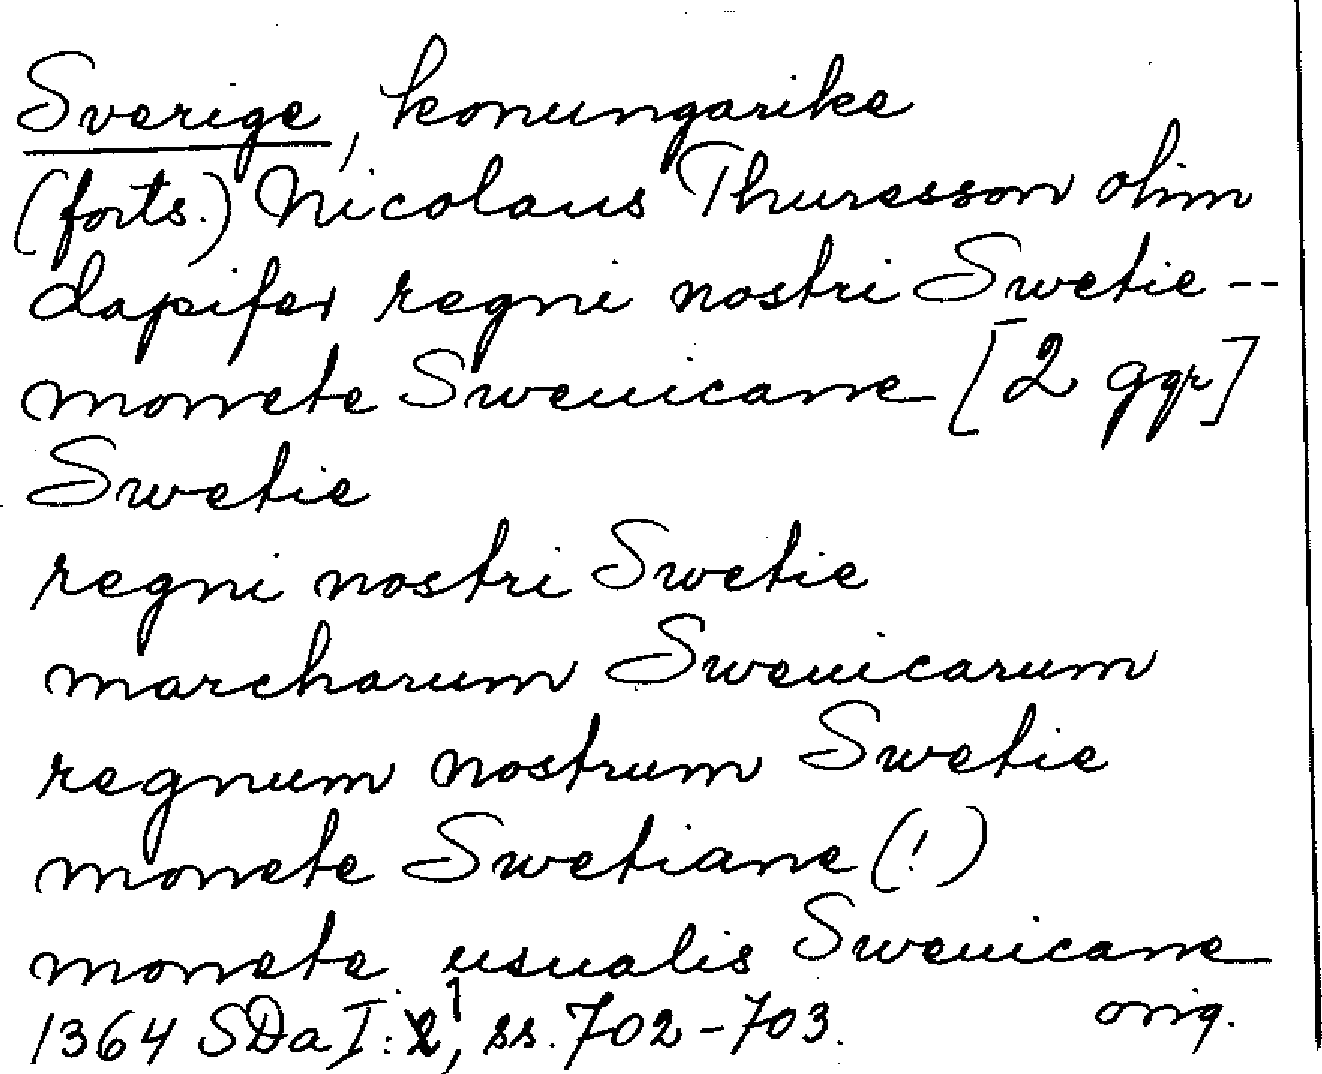 Sverige, konungarike
(forts.) Nicolaus Thuresson olim
dapifer regni nostri Swetie --
monete Sweuicane [2 ggr]
Swetie
regni nostri Swetie
marcharum Sweuicarum
regnum nostrum Swetie
monete Swetiane (!)
monete usualis Sweuicane
1364 SDa I:1, ss. 702-703. orig.